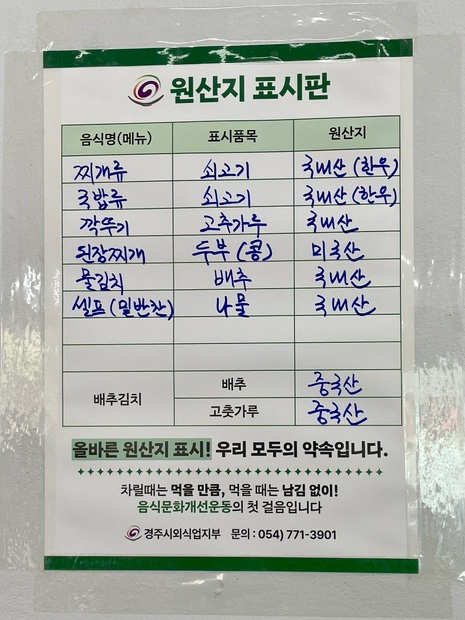 원산지 표시판
음식명(메뉴) 표시품목 원산지
찌개류 쇠고기 국내산 (한우)
국밥류 쇠고기 국내산 (한우)
깍뚜기 고추가루 국내산
된장찌개 두부 (콩) 미국산
물김치 배추 국내산
셀프 (밑반찬) 나물 국내산
배추김치 배추 중국산
고춧가루 중국산
올바른 원산지 표시! 우리 모두의 약속입니다.
차릴때는 먹을 만큼, 먹을 때는 남김 없이!
음식문화개선운동의 첫 걸음입니다
경주시외식업지부 문의 : 054) 771-3901